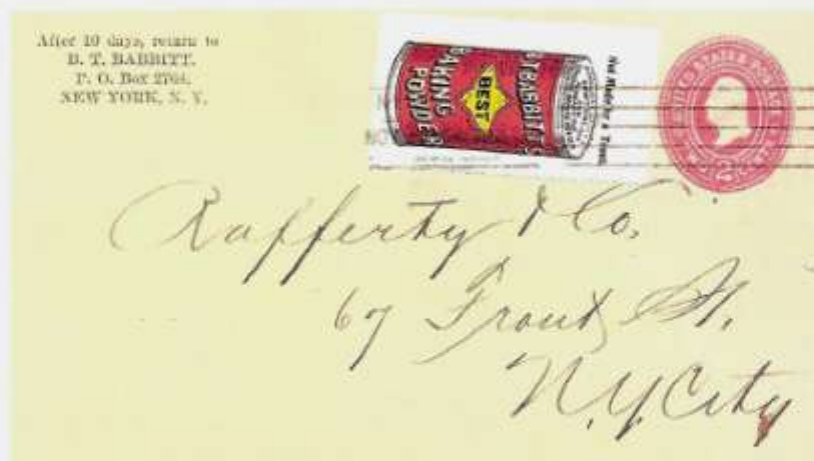 After 10 days, return to
B. T. BABBITT.
P. O. Box 2764.
NEW YORK, N. Y.
B.T. BABBITT'S
BEST
BAKING
POWDER
Not Made by a Trust.
UNITED STATES
Rafferty & Co.
67 Front St.
N.Y. City